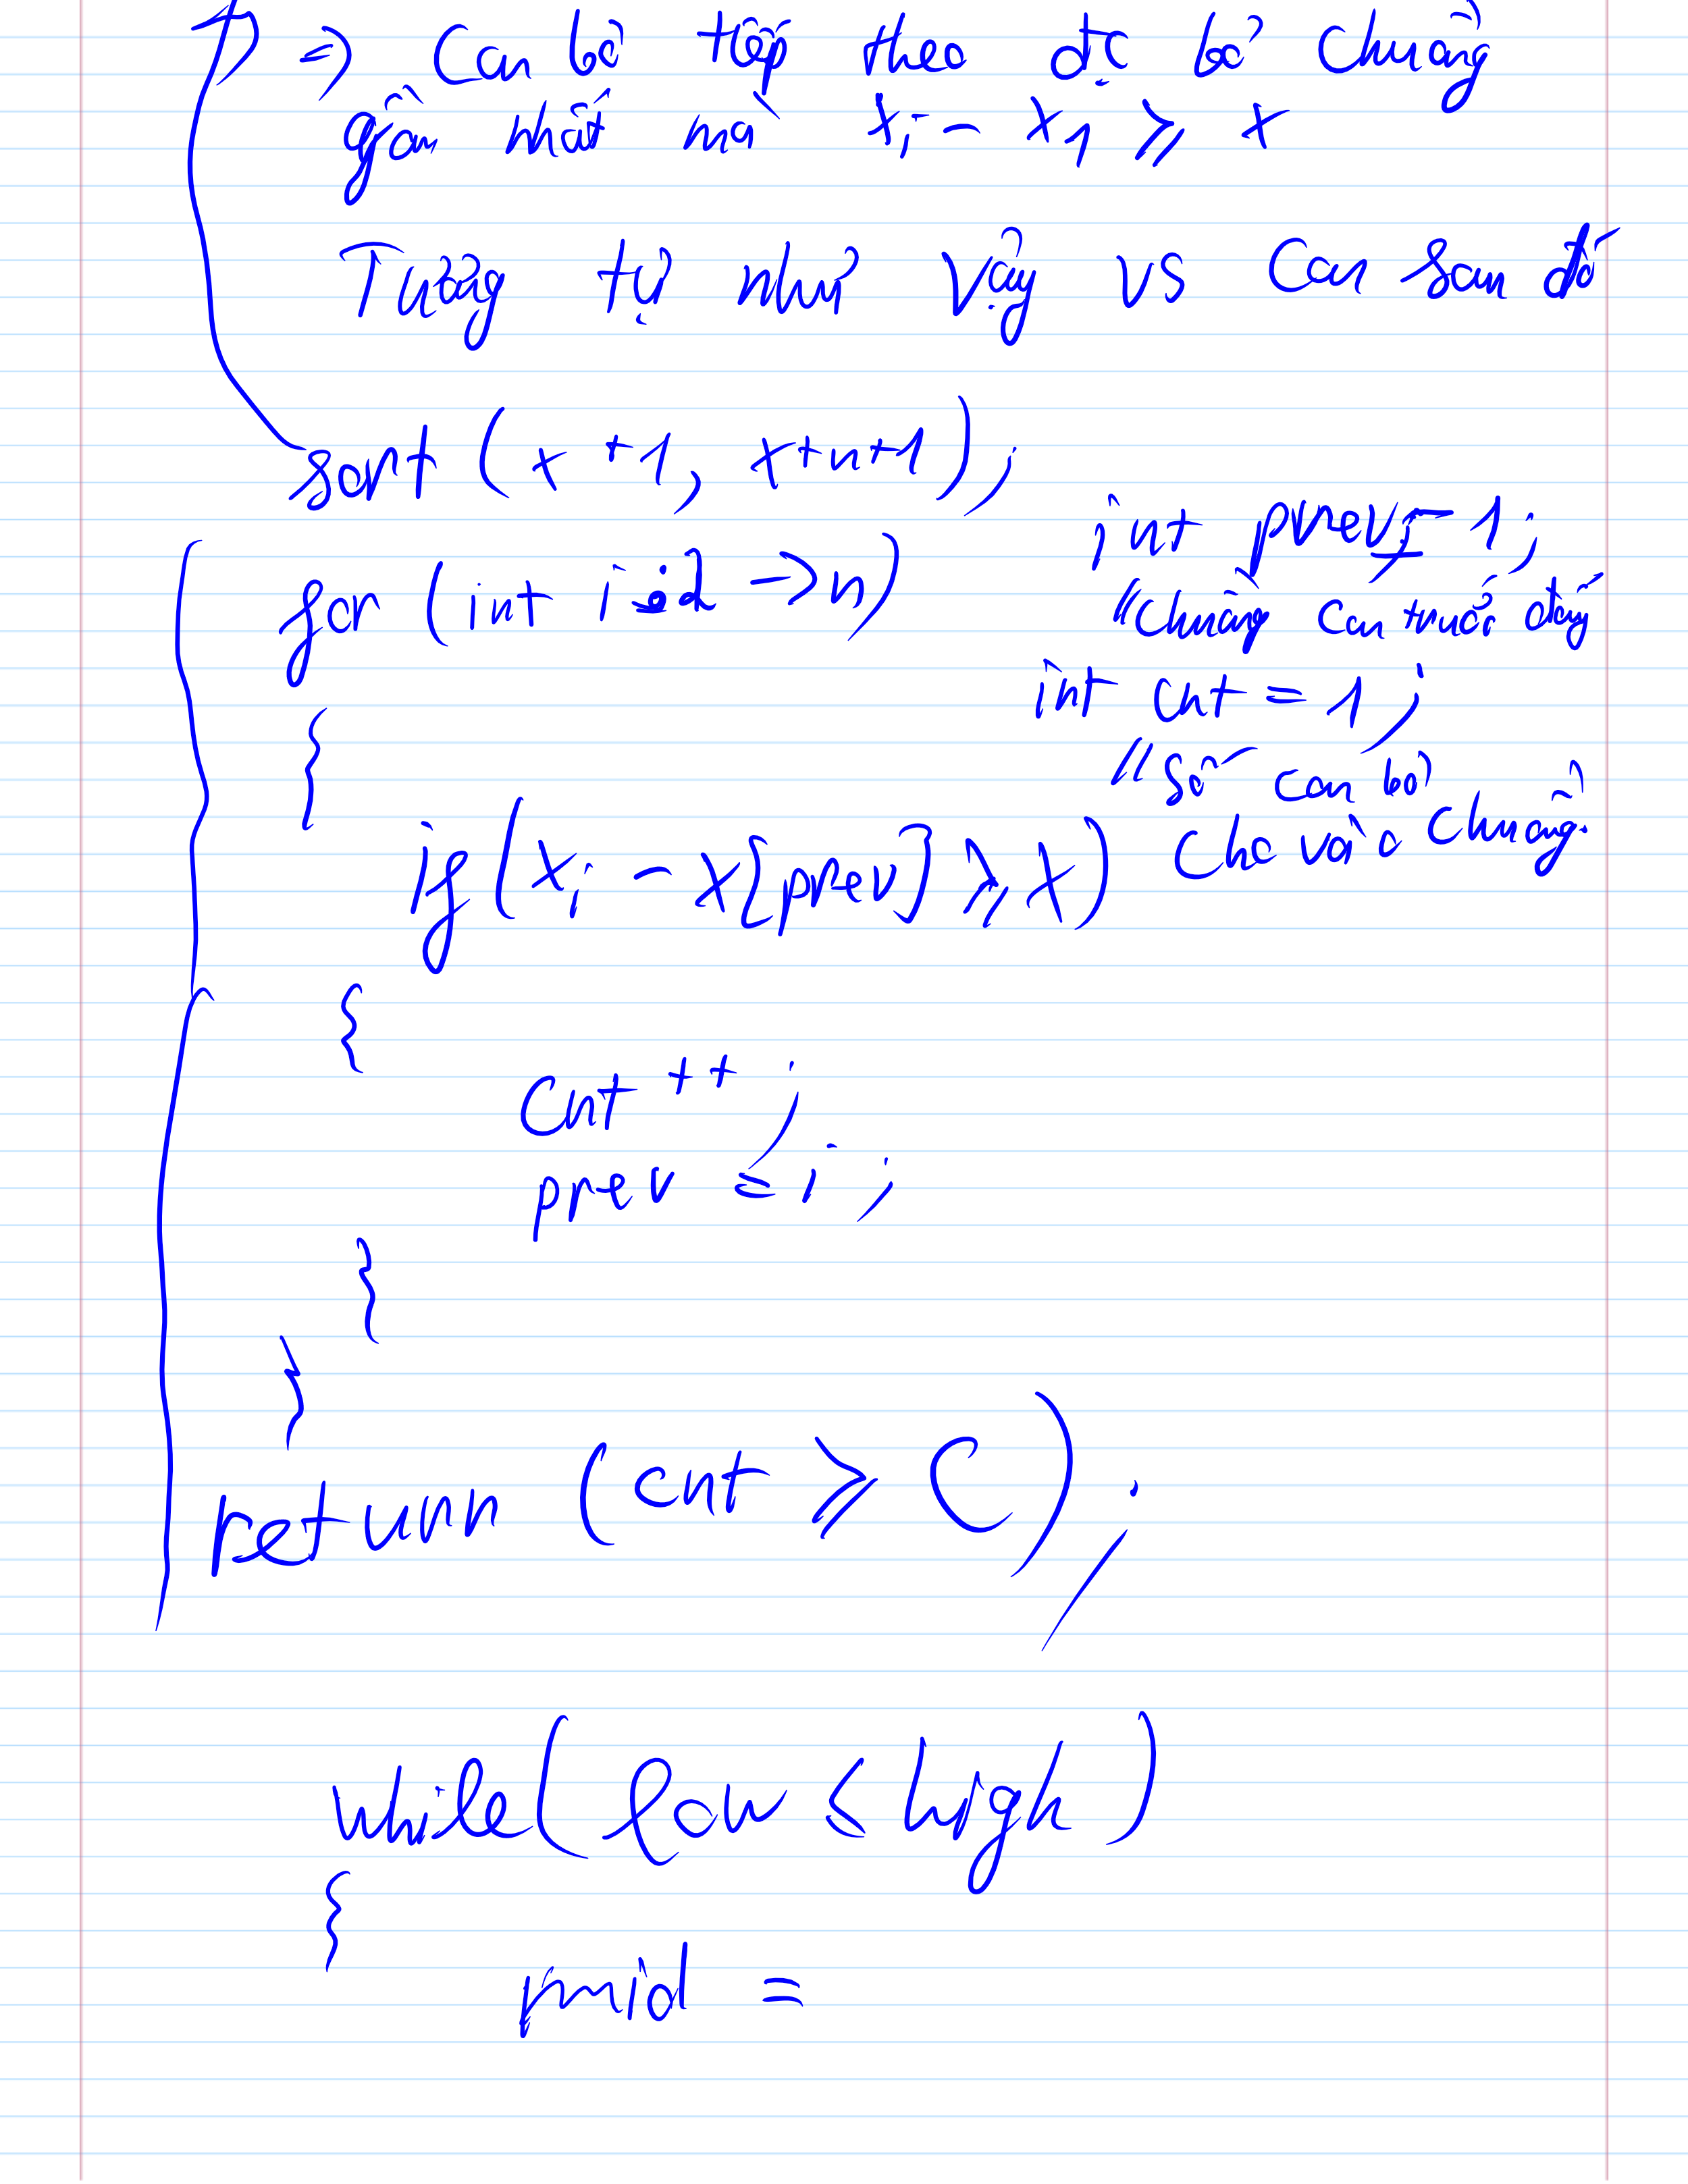 => Con bò tiếp theo đc bỏ chuồng
gần nhất mà xi - x1 ≥ x
Tương tự như vậy vs con sau đó
sort (x+1, x+n+1);
int prev = 1;
for (int i = 2 -> n)
// chuồng con trước đây
int cnt = 1;
{
// số con bò
cho vào chuồng.
if (xi - x[prev] ≥ x)
{
cnt ++;
prev = i;
}
}
return (cnt ≥ C);
while (low < high)
{
mid =